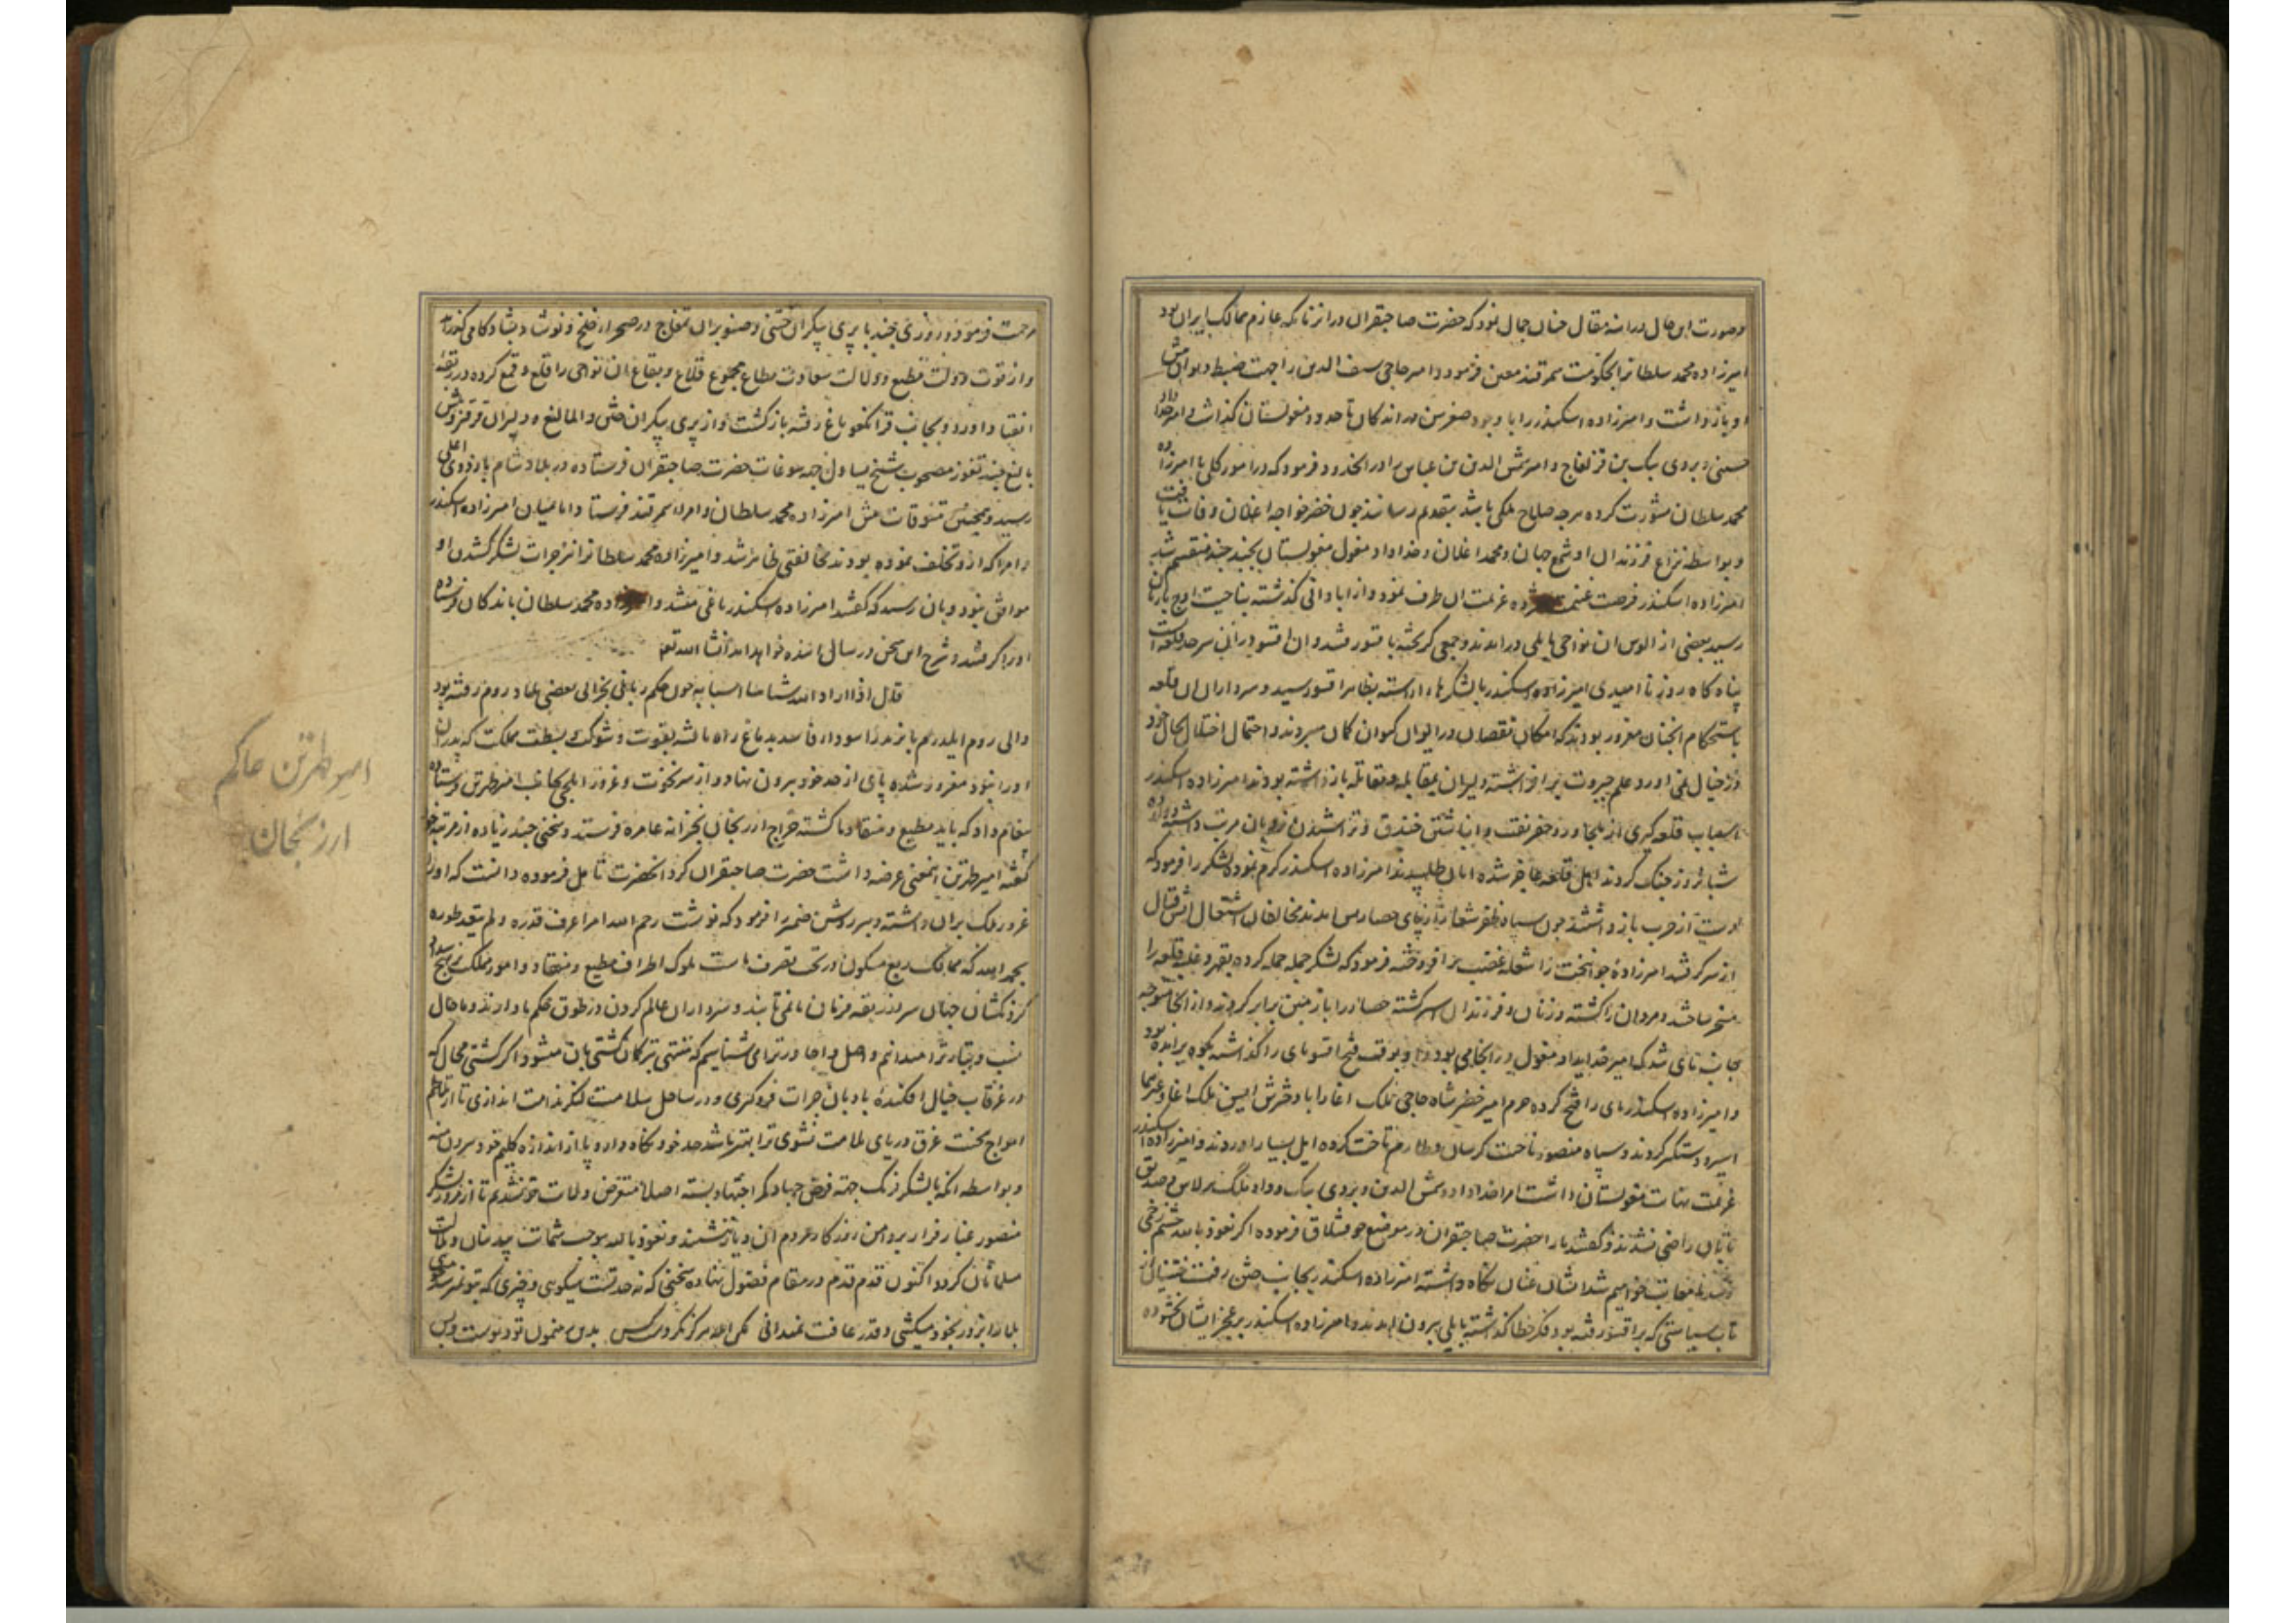 و صورت این حال در اثناء مقال چنان جمال نمود که حضرت صاحبقران در انزمان که عازم ممالک ایران بود
امیرزاده محمد سلطانرا بحکومت سمرقند معین فرمود و امیر حاجی سیف الدین را جهت ضبط دیوان پیش
او باز داشت و امیرزاده اسکندر را با وجود صغر سن در اندکان تا حدود مغولستان گذاشت و امیر خداداد
حسینی و بردی بیک بن و امیر شمس الدین بن عباس برادر و فرمود که در امور کلی با امیرزاده
محمد سلطان مشورت کرده هرچه صلاح ملکی باشد بتقدیم رسانند چون خضر خواجه اغلان وفات یافت
و بواسطه نزاع فرزندان او شمع جهان و محمد اغلان و خداداد مغول مغولستان بخند چند منقسم شد
امیرزاده اسکندر فرصت غنیمت شمرده عزیمت ان طرف نمود و از ابادانی گذشته بناحیت
رسید بعضی از الوس ان نواحی بایلی در امدند و جمعی گریخته باقسو رفتند و ان اقسو در ان سرحد قلعه است
پناه گاه روز نا امیدی امیرزاده اسکندر با لشکرها اراسته بظاهر اقسو رسید و سرداران ان قلعه
باستحکام انچنان مغرور بودند که امکان نقصان در ایوان کیوان گمان میبردند و احتمال اختلال بحال خود
در خیال نمی اورد و علم جبروت بر افراشته دلیران بمقابله و مقاتله باز داشته بودند امیرزاده اسکندر
اسباب قلعه گیری از و حفر نقب و انباشتن خندق و تراشیدن نردبان مرتب داشته
شبانروز جنگ کردند اهل قلعه عاجز شده امان طلبیدند امیرزاده اسکندر کرم نموده لشکر را فرمود که
دست از حرب باز داشتند چون سپاه ظفر شعار از پای حصار پس امدند مخالفان اشتعال اتش قتال
از سر گرفتند امیرزاده جوانبخت را شعله غضب بر افروخته فرمود که لشکر جمله حمله کرده بقهر و غلبه قلعه را
مسخر ساختند و مردان را کشته و زنان و فرزندان اسیر گشته حصار را با زمین برابر کردند و از انجا متوجه
جانب بای شد که امیر خدایداد مغول در انجا می بود و بوقت فتح اقسو بای را گذاشته بکوه بر امده بود
و امیرزاده اسکندر بای را فتح کرده حرم امیر خضر شاه حاجی ملک اغا را با دخترش ایسن ملک اغا و غیرهما
اسیر و دستگیر کردند و سپاه منصور تاخت کوسان و طارم تاخت کرده ایل بسیار اوردند و امیرزاده اسکندر
عزیمت نهایت مغولستان داشت امرا خداداد و شمس الدین و بردی بیک و داد ملک برلاس و صدیق
تابان راضی نشدند و گفتند ما را حضرت صاحبقران در موضع قشلاق فرموده اگر نعوذ بالله چشم زخمی
رسد معاتب خواهیم شد ایشان عنان نگاه داشته امیرزاده اسکندر بجانب ختن رفت ختنیان از
تاب سیاستی که بر اقسو رفته بود فکر خطا گذاشته بایلی بیرون امدند و امیرزاده اسکندر بر عجز ایشان بخشوده
مرحمت فرمود و روزی چند با پری پیکران ختنی و صنوبران طمغاج در صحرا خلخ و نوشاد بشادکامی گذرانید
و از قوت دولت مطیع و دلالت سعادت مطاع مجموع قلاع و بقاع ان نواحی را قلع و قمع کرده در ربقه
انقیاد اورد و بجانب قرانکغو باغ رفته باز گشت و از پری پیکران ختن و المالیغ و دلبران
بالغ چند تقوز مصحوب شیخ یساول جهت سوغات حضرت صاحبقران فرستاده در بلاد شام باردوی اعلی
رسید و همچنین تنسوقات پیش امیرزاده محمد سلطان و امراء سمرقند فرستاد و اما میان امیرزاده اسکندر
و امرا که از و تخلف نموده بودند مخالفتی ظاهر شد و امیرزاده محمد سلطانرا نیز جرات لشکر کشیدن او
موافق نبود و بان رسید که گفتند امیرزاده اسکندر باغی میشد و امیرزاده محمد سلطان باندکان فرستاده
او را گرفتند و شرح این سخن در سال اینده خواهد امد انشاء الله تع
قال اذا اراد الله شیئا هیا اسبابه چون حکم ربانی بخرابی بعضی بلاد روم رفته بود
والی روم ایلدرم بایزید را سودای فاسد بدماغ راه یافته بقوت و شوکت و بسطت مملکت که پدران
او را نبود مغرور شده پای از حد خود بیرون نهاد و از سر نخوت و غرور ایلچی بجانب امیر طهرتن فرستاده
پیغام داد که باید مطیع و منقاد ما گشته خراج ارزنجان بخزانه عامره فرستد و سخنی چند زیاده از مرتبه خود
گفته امیر طهرتن اینمعنی عرضه داشت حضرت صاحبقران کرد انحضرت تامل فرموده دانست که او را
غرور ملک بران داشته دبیر روشن ضمیر را فرمود که نوشت رحم الله امرا عرف قدره و لم یتعد طوره
بحمد الله که ممالک ربع مسکون در تحت تصرف ماست ملوک اطراف مطیع و منقاد و امور مملکت بر نهج سداد
گردنکشان جهان سر از ربقه فرمان ما نمی تابند و سرداران عالم گردن در طوق حکم ما دارند و ما حال
نسب و تبار ترا میدانیم و اصل و جا در ترا می شناسیم که منتهی بترکمان کشتی بان میشود اگر کشتی محال که
در غرقاب خیال افکنده بادبان جرات فرو گیری و در ساحل سلامت لنگر ندامت اندازی تا از تلاطم
امواج محنت غرق دریای ملامت نشوی ترا بهتر باشد حد خود نگاه دار و پا از اندازه گلیم خود بیرون منه
و بواسطه انکه با لشکر فرنگ جهت فرض جهاد کمر اجتهاد بسته اصلا متعرض ولایت تو نشدیم تا از عبور لشکر
منصور غبار فرار بر دامن روزگار مردم ان دیار ننشیند و نعوذ بالله موجب شماتت بیدینان و ملالت
مسلمانان گردد اکنون قدم قدم در مقام فضول نهاده سخنی که نه حد تست میگویی و چیزی که بتو نمیرسد میجویی
بلا را بزور بخود میکشی و قدر عافیت نمیدانی مکن انکه هرگز نکردست کس بدین رهنمون تو دیوست و بس
امیر طهرتن حاکم
ارزنجان